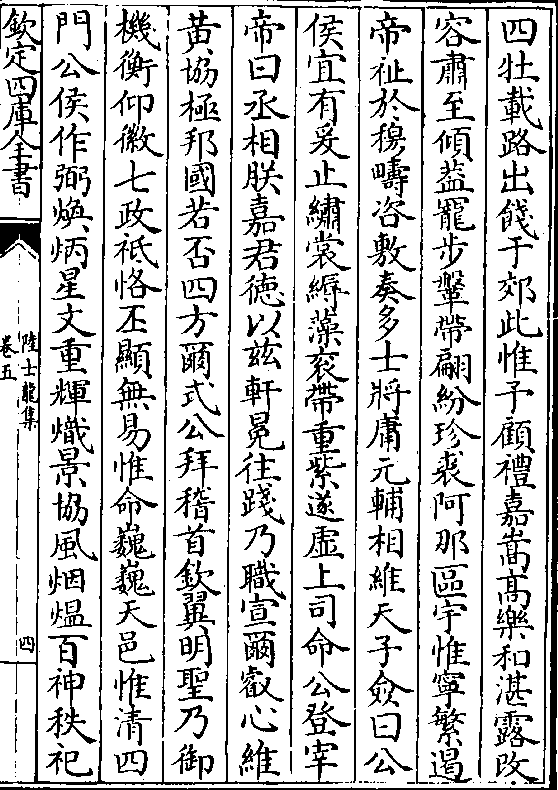 四牡載路出餞于郊此惟予顧禮嘉嵩髙樂和湛露改
容肅至傾葢罷步鞶帶翩紛珍裘阿那區宇惟寧繁遏
帝祉於穆疇咨敷奏多士將庸元輔相維天子僉曰公
侯宜有爰止繡裳縟藻衮帶重紫遂虚上司命公登宰
帝曰丞相朕嘉君徳以兹軒冕往踐乃職宣爾叡心維
黄協極邦國若否四方爾式公拜稽首欽翼明聖乃御
機衡仰徽七政祇恪丕顯無易惟命巍巍天邑惟清四
門公侯作弼煥炳星文重輝熾景協風烟熅百神秩祀
欽定四庫全書
陸士龍集
卷五
四